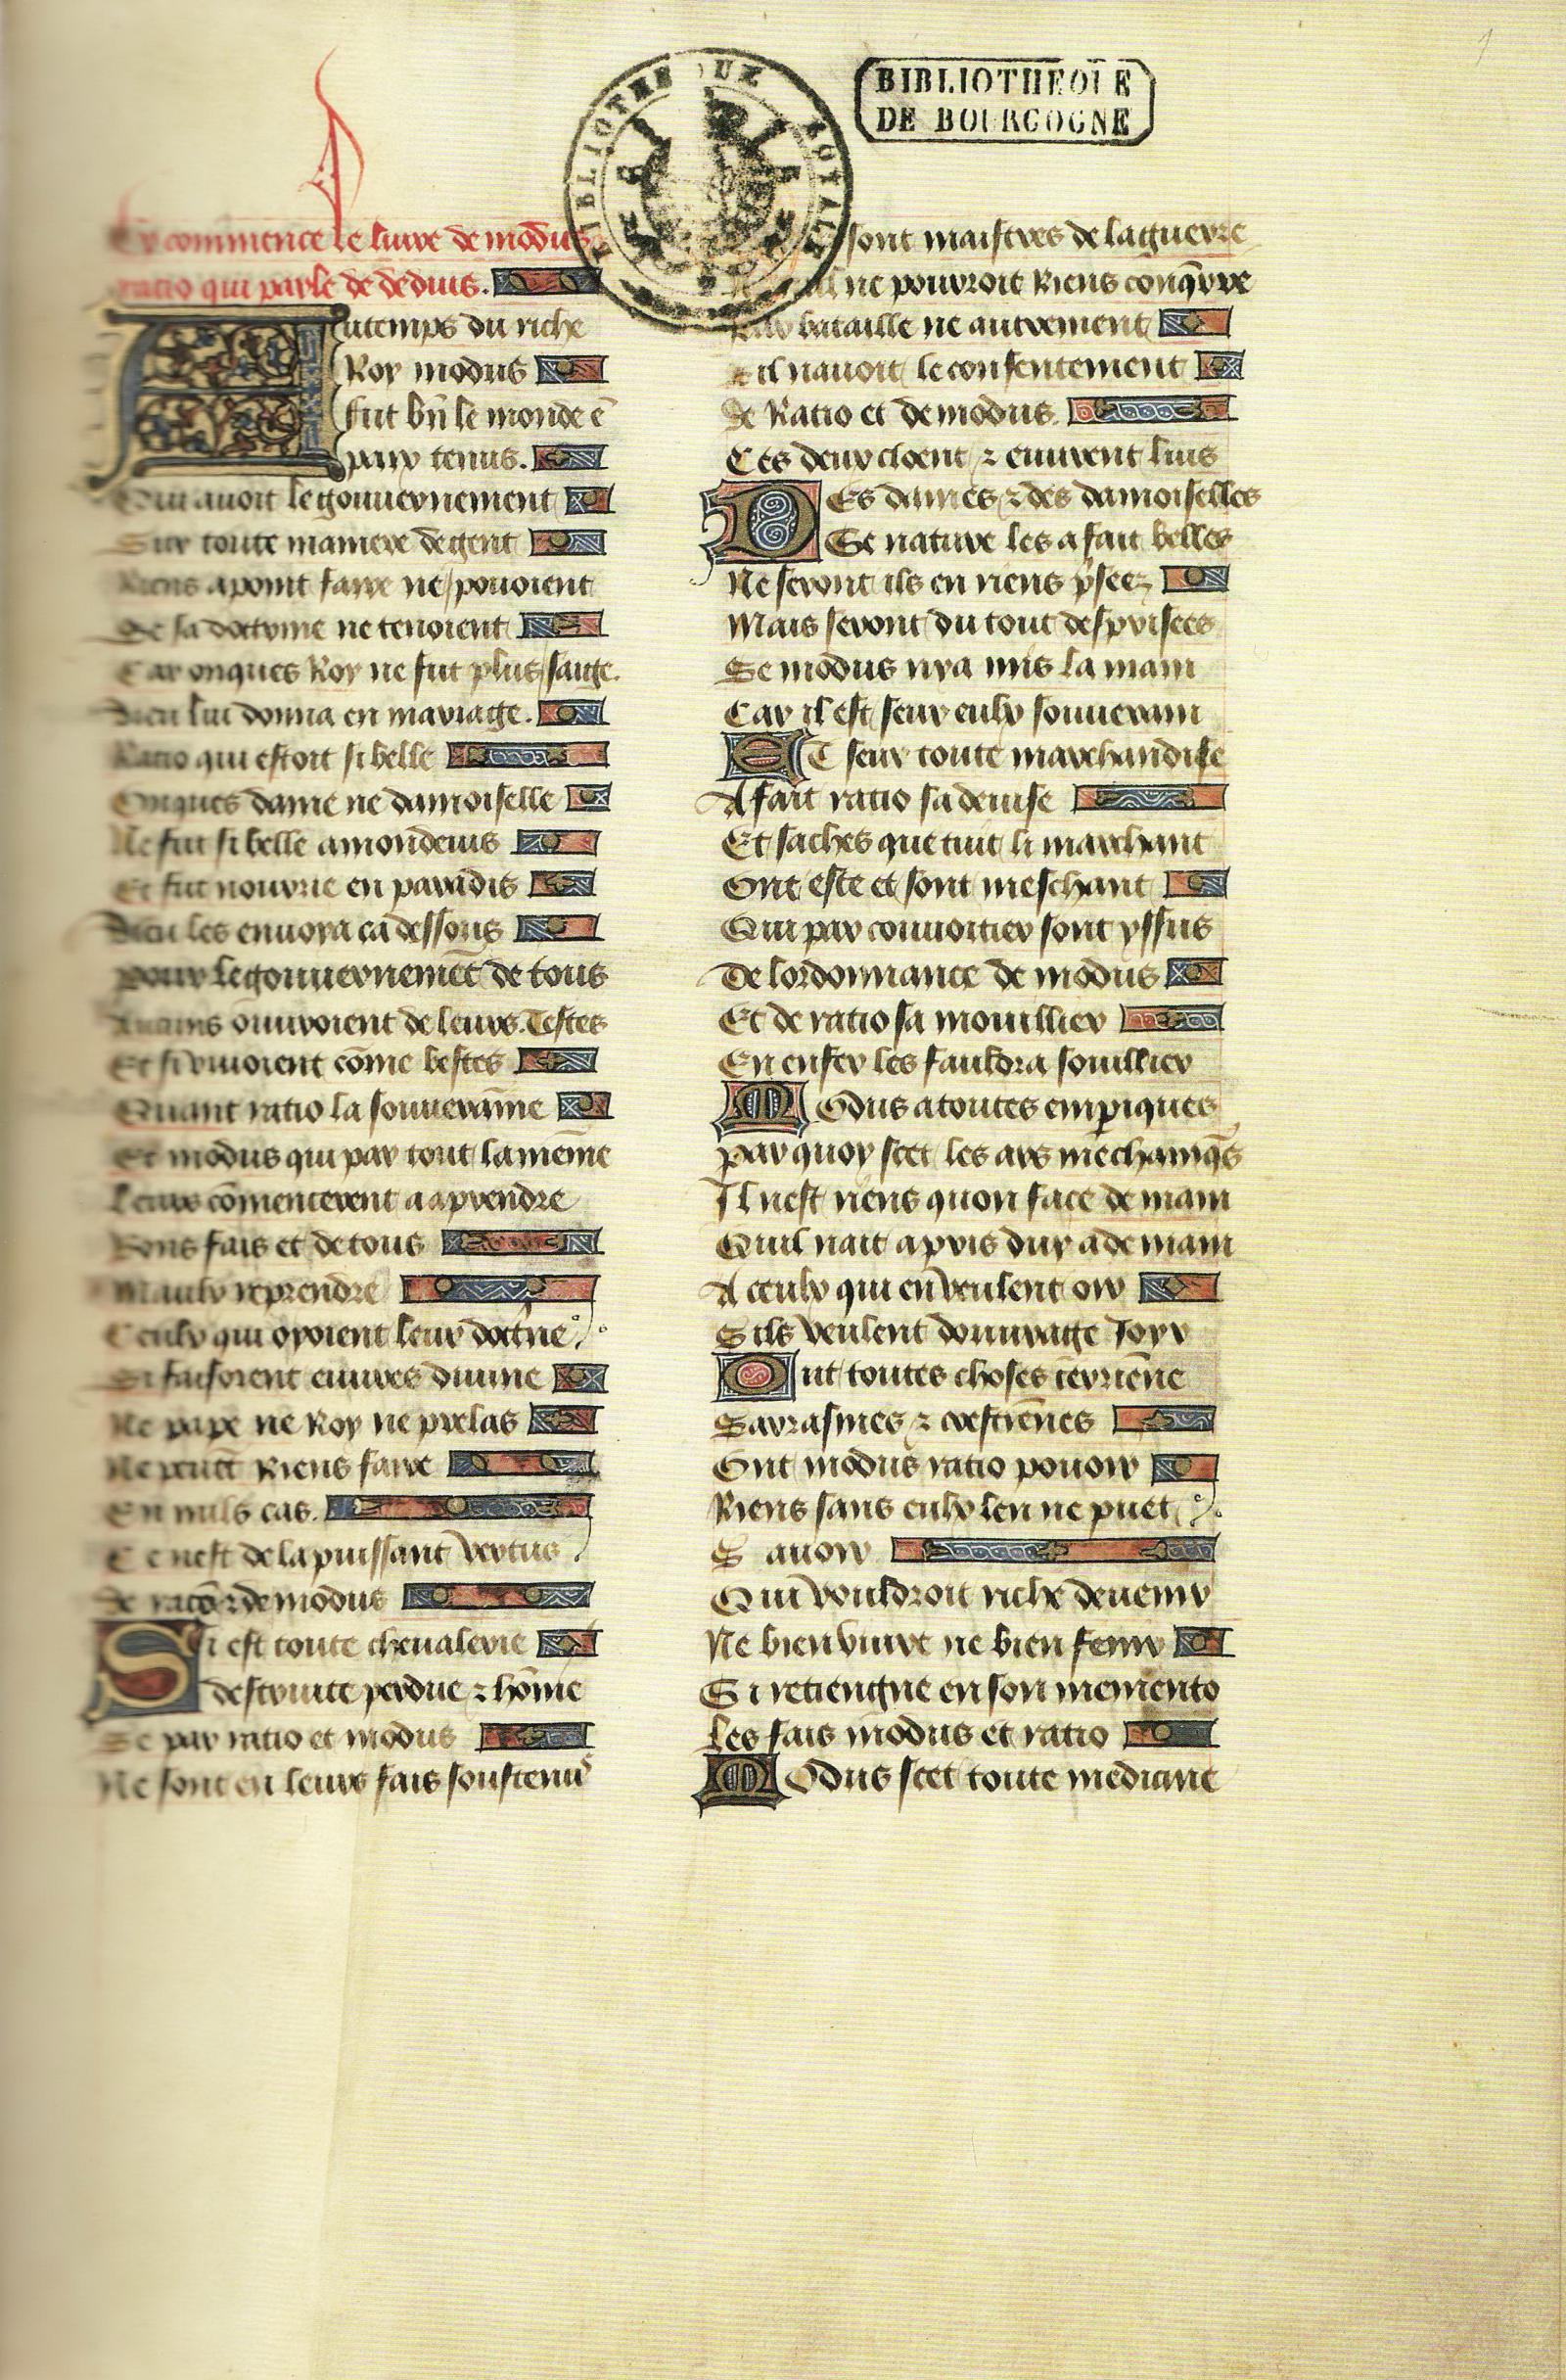 BIBLIOTHEQUE
DE BOURGOGNE
1
Cy commence le livre de modus
ratio qui parle de deduis.
Autemps du riche
Roy modus
fut bn̄ le monde ē
paix tenus.
Qui auoit le gouuernement
Sur toute maniere de gent
Riens a point faire ne pouoient
Se sa doctrine ne tenoient
Car onques Roy ne fut plus saige.
Dieu lui donna en mariage.
Ratio qui estoit si belle
Onques dame ne damoiselle
Ne fut si belle a mon deuis
Et fut nourrie en paradis
Dieu les enuoya ca dessous
pour le gouuernemēt de tous
ouuroient de leurs Testes
Et si viuoient cōme bestes
Quant ratio la souueraine
Et modus qui par tout la meine
Leurs cōmencerent a aprendre
Bons fais et de tous
Maulx reprendre
Ceulx qui oyoient leur doct'ne
Si faisoient euures diuine
Ne pape ne Roy ne prelas
Ne peuēt Riens faire
En nuls cas.
Ce nest de la puissant vertus
de racō ⁊ de modus
Si est toute cheualerie
destruite perdue ⁊ hōnie
Se par ratio et modus
Ne sont en leurs fais soustenus
sont maistres de la guerre
ne pourroit Riens conq̄rre
Par bataille ne autrement
il nauoit le consentement
de Ratio et de modus.
Ces deux cloent ⁊ euurent luis
Des dames ⁊ des damoiselles
Se nature les a fait belles
Ne seront ils en riens p̄sees
Mais seront du tout desprisees
Se modus nya mis la main
Car il est seur eulx souuerain
ET seur toute marchandise
A fait ratio sa deuise
Et saches que tuit li marchant
Ont este et sont meschant
Qui par conuoitier sont yssus
De lordonnance de modus
Et de ratio sa mouillier
En enfer les fauldra souillier
Modus a toutes empiques
par quoy scet les ars mechaniq̄s
Il nest riens quon face de main
Quil nait apris duy a demain
A ceulx qui en veulent oir
Sils veulent douurage Joyr
Sut toutes choses terriēne
Sarrasines ⁊ crestiēnes
Ont modus ratio pouoir
Riens sans eulx len ne puet
Sauoir
Qui vouldroit riche deuenir
Ne bien viure ne bien fenir
Si retiengne en son memento
Les fais modus et ratio
Modus scet toute medicine